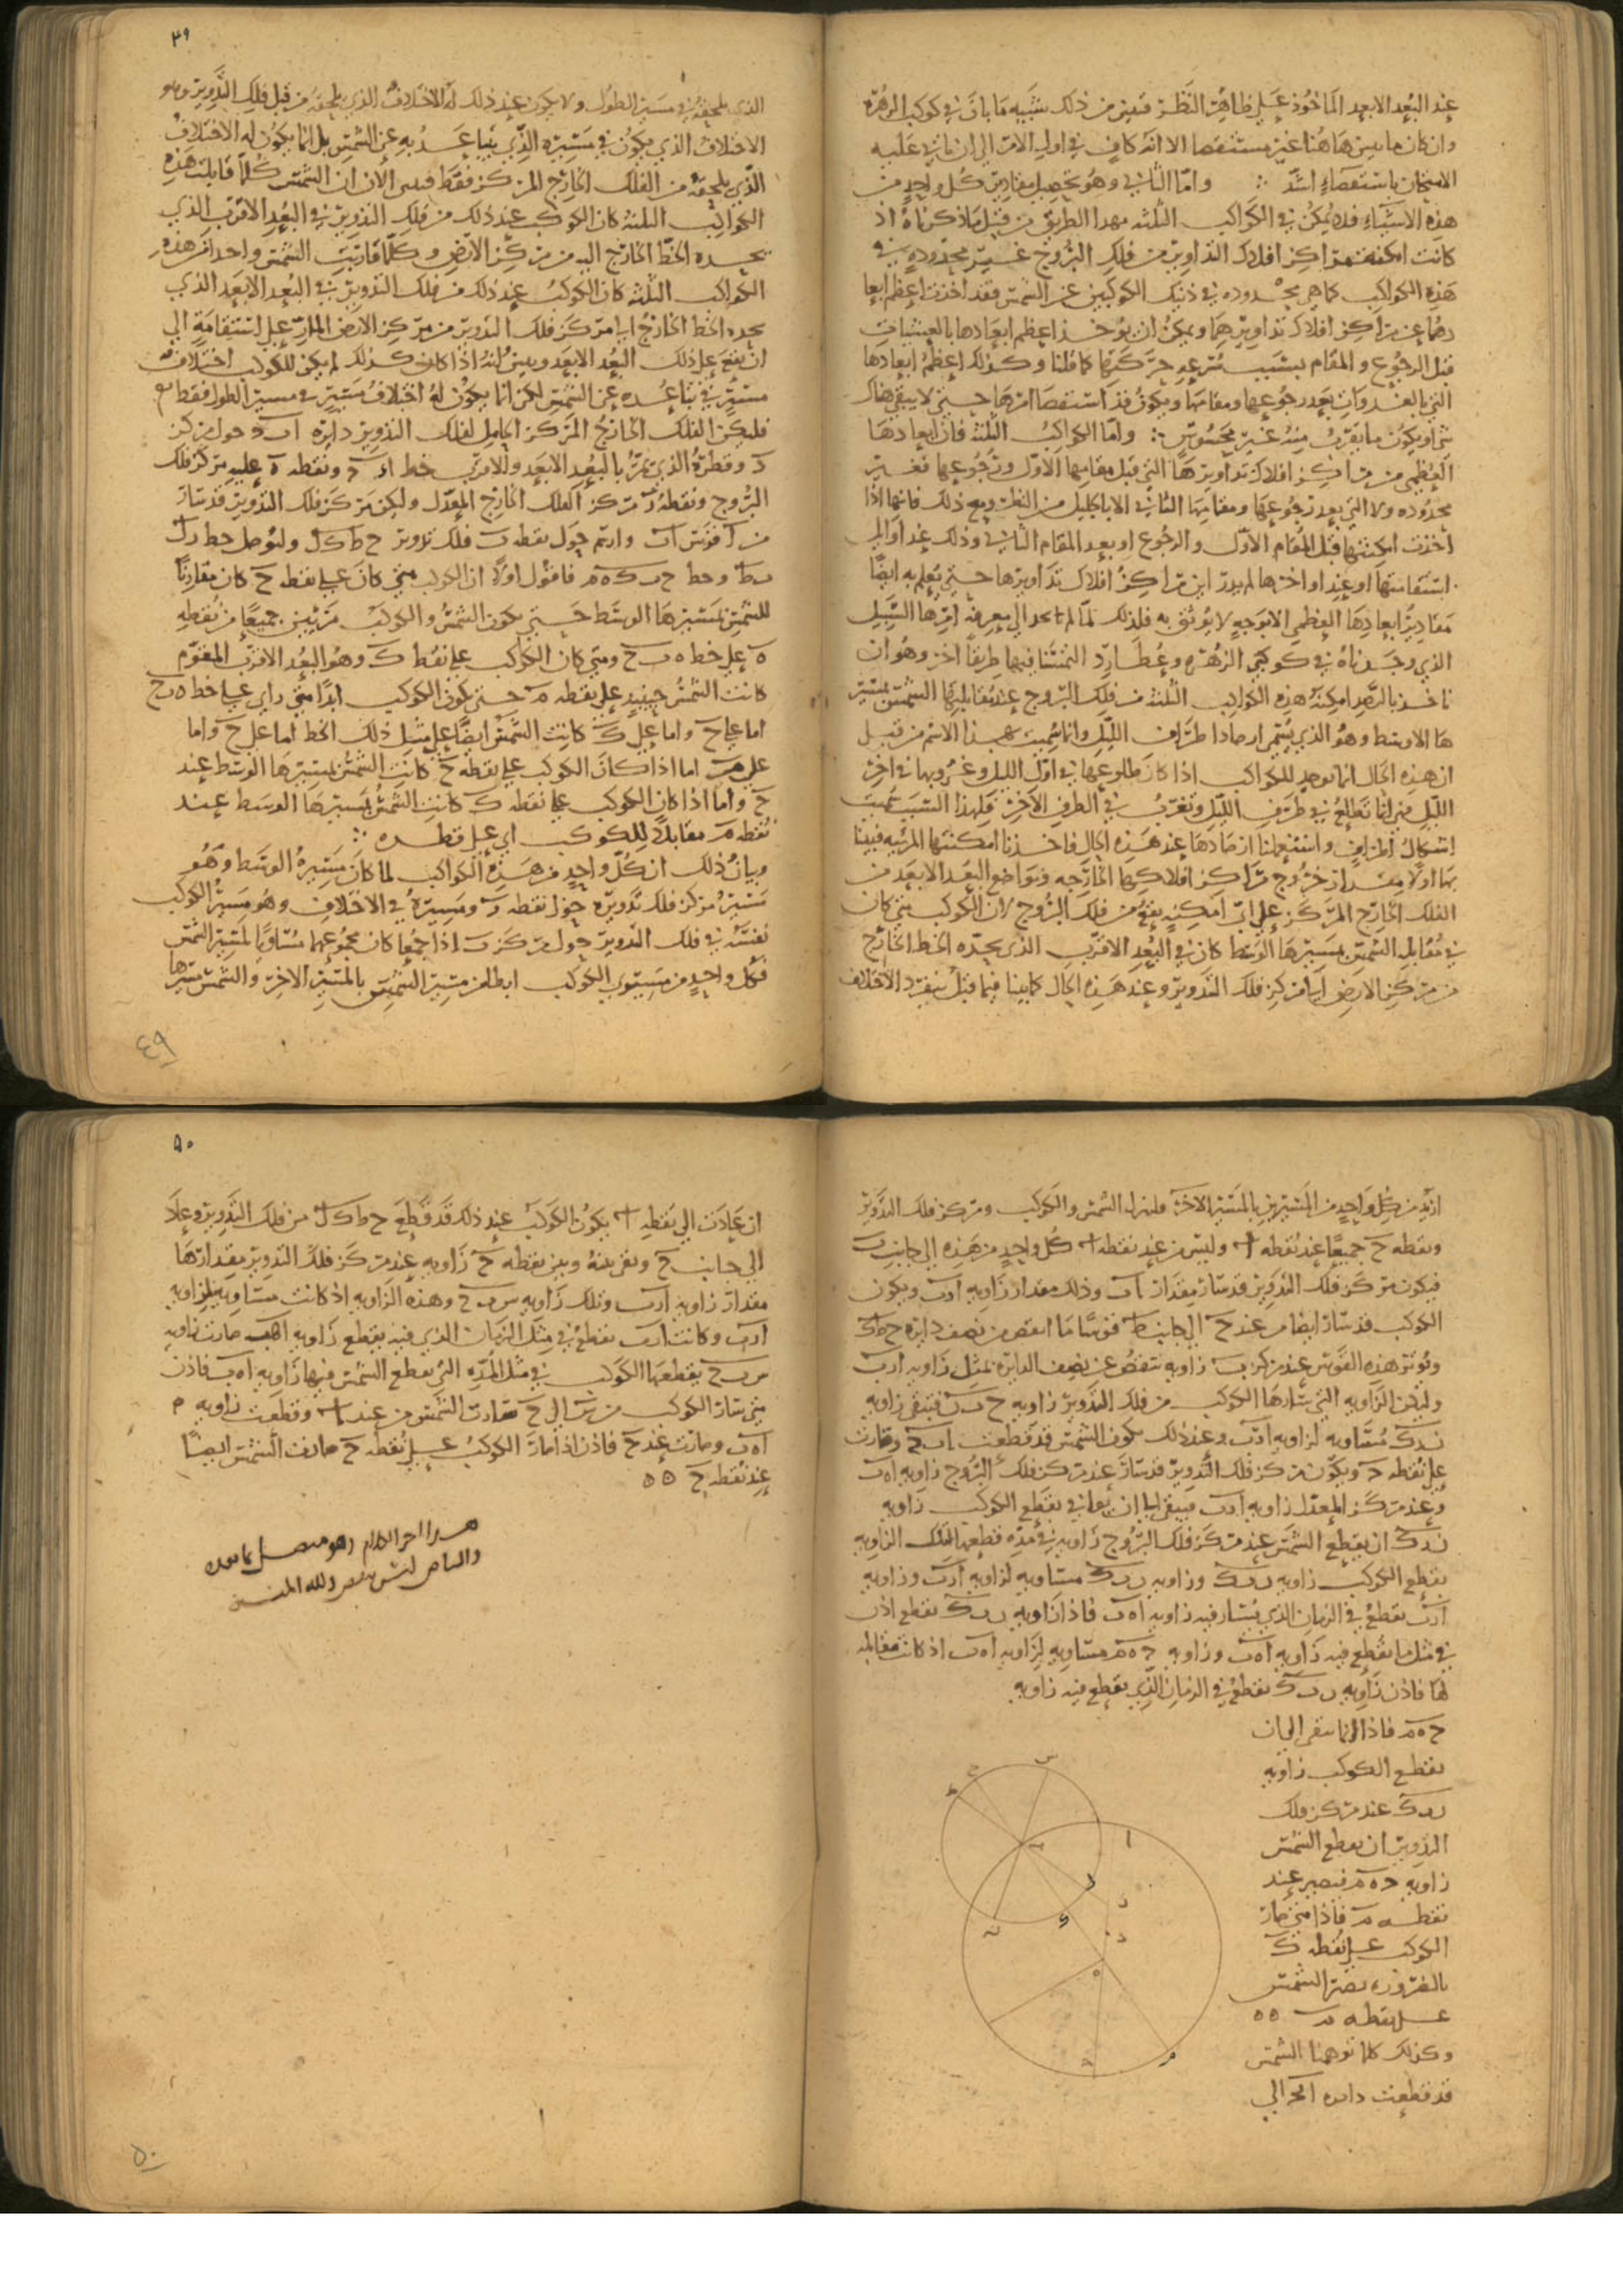 عند البعد الابعد الماخوذ على ظاهر النظر فتبين من ذلك شبيه ما بان في كوكب الزهرة
وان كان ما تبين هاهنا غير مستقصا الا انه كاف في اول الامر الى ان ناتي عليه
الامتحان باستقصاء اشد ∴ واما الثاني وهو تحصيل مقادير كل واحد من
هذه الاشياء فلا يمكن في الكواكب الثلثه بهذا الطريق من قبل ما ذكرناه اذ
كانت امكنة مراكز افلاك التداوير من فلك البروج غير محدوده في
هذه الكواكب كما هي محدوده في ذنك الكوكبين عن الشمس فقد اخذت اعظم ابعا
دهما عن مراكز افلاك تداويرهما ويمكن ان يوخذ اعظم ابعادها بالعشيات
قبل الرجوع والمقام بسبب سرعه حركتها كما قلنا وكذلك اعظم ابعادها
التي بالغدوات بعد رجوعها ومقامها ويكون قد استقصا امرها حتى لا يبقى هناك
شي او يكون ما يقرب منه غير محسوس ∴ واما الكواكب الثلثه فان ابعادها
العظمى من مراكز افلاك تداويرها التي قبل مقامها الاول ورجوعها فغير
محدوده ولا التي بعد رجوعها ومقامها الثاني الا باكليل من النظر ومع ذلك فانها اذا
اخذت امكنتها قبل المقام الاول والرجوع او بعد المقام الثاني وذلك عند اوايل
استقامتها او عند اواخرها لم يدر اين مراكز افلاك تداويرها حتى يعلم به ايضا
مقادير ابعادها العظمى الا بوجه لا يوثق به فلذلك لما لم نجد الى معرفة امرها السبيل
الذي وجدناه في كوكبي الزهره وعطارد التمسنا فيها طريقا اخر وهو ان
ناخذ بالرصد امكنة هذه الكواكب الثلثه من فلك البروج عند مقابلتها الشمس بمسير
ها الاوسط وهو الذي يسمى ارصادا طراف الليل وانما سميت بهذا الاسم من قبل
ان هذه الحال انما توجد للكواكب اذا كان طلوعها في اول الليل وغروبها في اخر
الليل فهي انما تطلع في طرف الليل وتغرب في الطرف الاخر فلهذا السبب سميت
اشكال اطراف واستعملنا ارصادها عند هذه الحال فاخذنا امكنتها المرئيه فبينا
بها اولا مقدار خروج مراكز افلاكها الخارجه ومواضع البعد الابعد من
الفلك الخارج المركز على اي امكنه يقع من فلك البروج لان الكوكب متى كان
في مقابله الشمس بمسيرها الوسط كان في البعد الاقرب الذي يحده الخط الخارج
من مركز الارض الى مركز فلك التدوير وعند هذه الحال كما بينا فيما قبل ينفرد الاختلاف
٣٩
الذي يلحقه في مسير الطول ولا يكون عند ذلك له الاختلاف الذي يلحقه من قبل فلك التدوير وهو
الاختلاف الذي يكون في مسيره الذي يتباعد به عن الشمس بل انما يكون له الاختلاف
الذي يلحقه من الفلك الخارج المركز فقط فبين الان ان الشمس كلما قابلت هذه
الكواكب الثلثه كان الكوكب عند ذلك من فلك التدوير في البعد الاقرب الذي
يحده الخط الخارج اليه من مركز الارض وكلما قاربت الشمس واحدا من هذه
الكواكب الثلثه كان الكوكب عند ذلك من فلك التدوير في البعد الابعد الذي
يحده الخط الخارج الى مركز فلك التدوير من مركز الارض المار على استقامة الى
ان يقع على ذلك البعد الابعد وبين انه اذا كان كذلك لم يكن للكوكب اختلاف
مسير في تباعده عن الشمس لكن انما يكون له اختلاف مسير في مسير الطول فقط
فليكن الفلك الخارج المركز الحامل لفلك التدوير دايره اب ج حول مركز
د وقطره الذي يمر بالبعد الابعد والاقرب خط ا د ج ونقطه ه عليه مركز فلك
البروج ونقطه ز مركز الفلك الخارج المعدل وليكن مركز فلك التدوير قد سار
من ا قوس اب وارتم حول نقطه ب فلك تدوير ح ط ك ل وليوصل خط ز ل
ب ط وخط ح ب ك ه م فاقول اولا ان الكوكب متى كان على نقطه ح كان مقارنا
للشمس بمسيرها الوسط حتى يكون الشمس والكوكب مرئيين جميعا من نقطه
ه على خط ه ب ح ومتى كان الكوكب على نقط ك وهو البعد الاقرب المقوم
كانت الشمس حينيذ على نقطه م حتى يكون الكوكب ابدا متى راي على خط ه ب ح
اما على ح واما على ك كانت الشمس ايضا على مثل ذلك الخط اما على ح واما
على م اما اذا كان الكوكب على نقطه ح كانت الشمس بمسيرها الوسط عند
ح واما اذا كان الكوكب على نقطه ك كانت الشمس بمسيرها الوسط عند
نقطه م مقابلا للكوكب اي على قطره ∴
وبيان ذلك ان كل واحد من هذه الكواكب لما كان مسيره الوسط وهو
مسير مركز فلك تدويره حول نقطه ز ومسيره في الاختلاف وهو مسير الكوكب
نفسه في فلك التدوير حول مركز ب اذا جمعا كان مجموعهما مساويا لمسير الشمس
فكل واحد من مسيري الكوكب ابطا من مسير الشمس بالمسير الاخر والشمس مسيرها
٤٩
ازيد من كل واحد من المسيرين بالمسير الاخر فلينزل الشمس والكوكب ومركز فلك التدوير
ونقطه ح جميعا عند نقطه ا وليس من عند نقطه ا كل واحد من هذه الى جانب ب
فيكون مركز فلك التدوير قد سار مقدار اب وذلك مقدار زاويه ا ز ب ويكون
الكوكب قد سار ايضا من عند ح الى جانب ط قوسا ما انقص من نصف دايره ح ط ك
وتوتر هذه القوس عند مركز ب زاويه تنقص عن نصف الدايره بمثل زاويه ا ز ب
ولتكن الزاويه التي سارها الكوكب من فلك التدوير زاويه ح ب ن فتبقى زاويه
ن ب ك مساويه لزاويه ا ز ب وعند ذلك يكون الشمس قد قطعت اب ج وصارت
على نقطه ج ويكون مركز فلك التدوير قد سار عند مركز فلك البروج زاويه ا ه ب
وعند مركز المعدل زاويه ا ز ب فيبقى الى ان يوافي بقطع الكوكب زاويه
ن ب ك ان يقطع الشمس عند مركز فلك البروج زاويه في مده قطعه لتلك الزاويه
يقطع الكوكب زاويه ن ب ك وزاويه ن ب ك مساويه لزاويه ا ز ب وزاويه
ا ز ب تقطع في الزمان الذي يسار فيه زاويه ا ه ب فاذا زاويه ن ب ك تقطع اذن
في مثل ما تقطع فيه زاويه ا ه ب وزاويه ج ه م مساويه لزاويه ا ه ب اذ كانت مقابله
لها فاذن زاويه ن ب ك تقطع في الزمان الذي يقطع فيه زاويه
ج ه م فاذا انما يبقى الى ان
يقطع الكوكب زاويه
ن ب ك عند مركز فلك
التدوير ان يقطع الشمس
زاويه ج ه م فتصير عند
نقطه م فاذا متى صار
الكوكب على نقطه ك
بالضروره تصير الشمس
على نقطه م ٥٥
وكذلك كلما توهمنا الشمس
قد قطعت دايره ا ب ج الى
س
ح
ط
ب
ا
ل
ز
ك
ن
د
ه
ج
م
٥٠
ان عادت الى نقطه ا يكون الكوكب عند ذلك قد قطع ح ط ك ل من فلك التدوير وعاد
الى جانب ح وبقي بينه وبين نقطه ح زاويه عند مركز فلك التدوير مقدارها
مقدار زاويه ا ز ب وتلك زاويه س ب ح وهذه الزاويه اذ كانت مساويه لزاويه
ا ز ب وكانت ا ز ب تقطع في مثل الزمان الذي فيه يقطع زاويه ا ه ب صارت زاويه
س ب ح يقطعها الكوكب في مثل المده التي يقطع الشمس فيها زاويه ا ه ب فاذن
متى سار الكوكب من س الى ح سارت الشمس من عند ا وقطعت زاويه
ا ه ب وصارت عند ح فاذن اذا صار الكوكب على نقطه ح صارت الشمس ايضا
عند نقطه ح ٥٥
هذا اخر الكلام وهو متصل بما بعده
والبياض ليس بنقص ولله المنه
٥٠